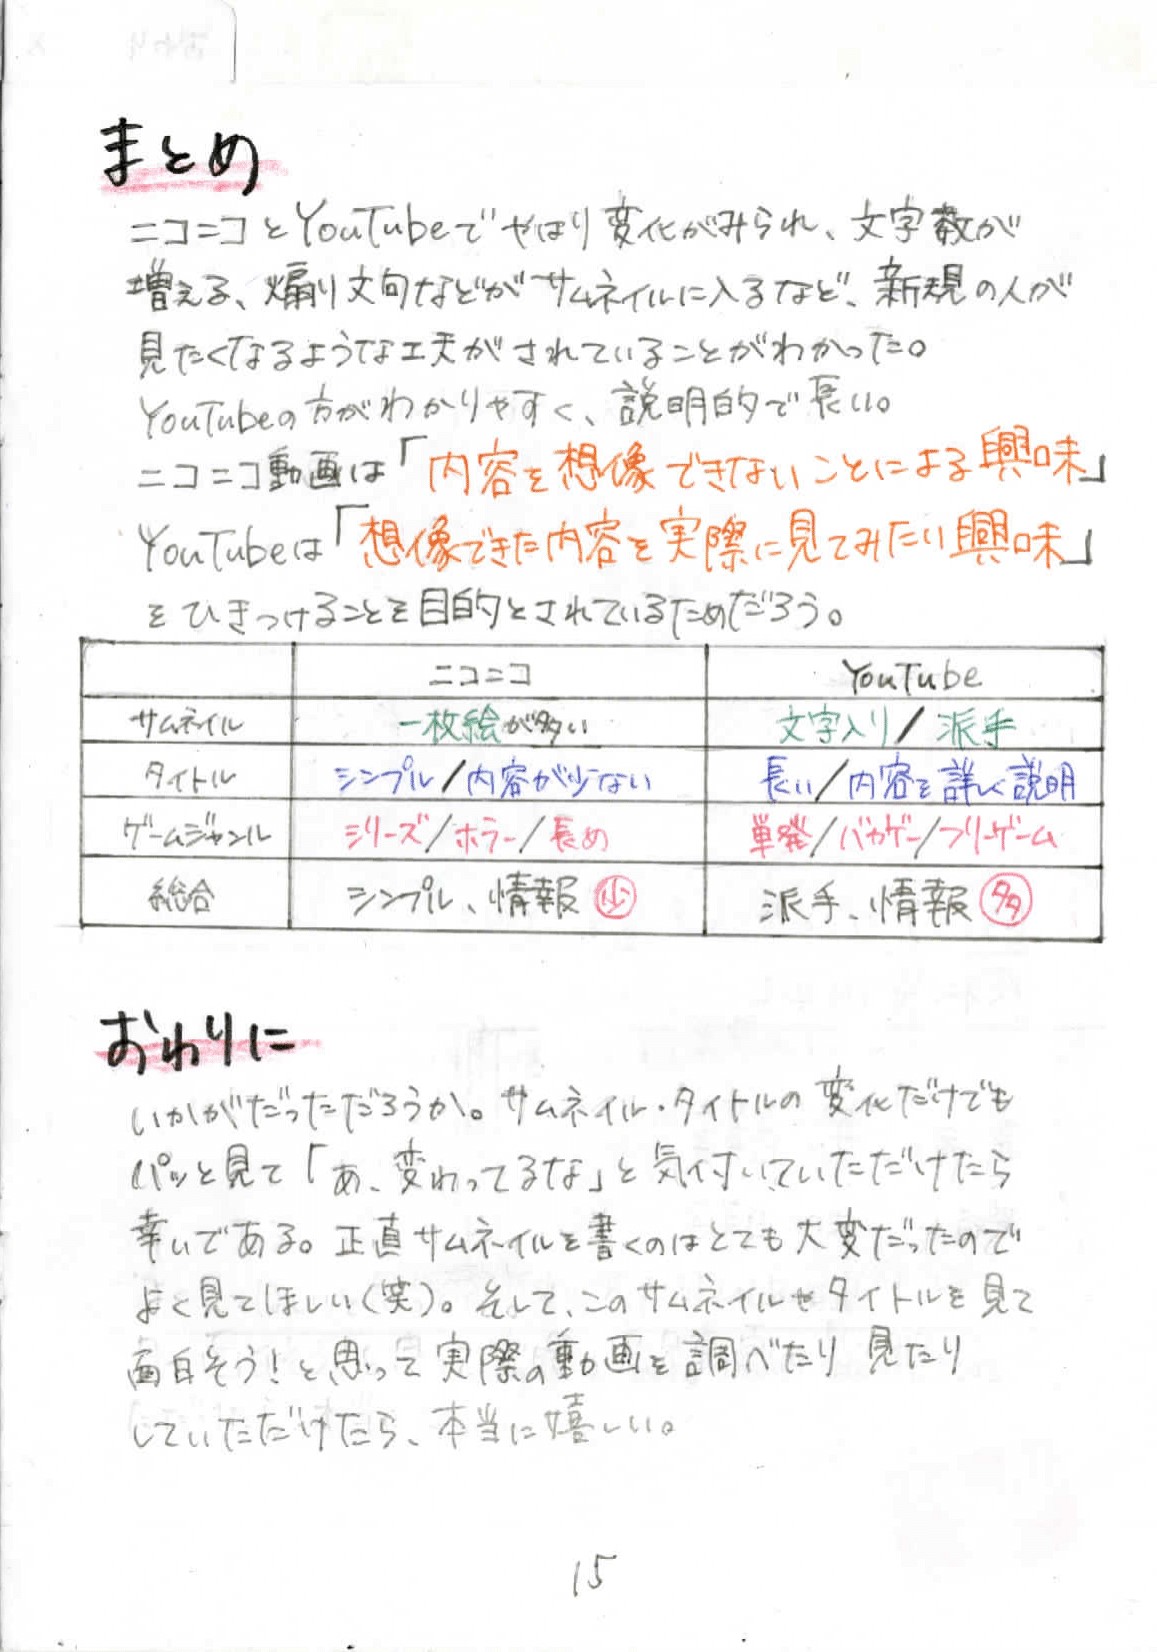 まとめ
ニコニコとYouTubeでやはり変化がみられ、文字数が
増える、煽り文句などがサムネイルに入るなど、新規の人が
見たくなるような工夫がされていることがわかった。
YouTubeの方がわかりやすく、説明的で長い。
ニコニコ動画は「内容を想像できないことによる興味」
YouTubeは「想像できた内容を実際に見てみたい興味」
をひきつけることを目的とされているためだろう。
ニコニコ YouTube
サムネイル 一枚絵が多い 文字入り/派手
タイトル シンプル/内容が少ない 長い/内容を詳しく説明
ゲームジャンル シリーズ/ホラー/長め 単発/バカゲー/フリーゲーム
総合 シンプル、情報少 派手、情報多
おわりに
いかがだっただろうか。サムネイル・タイトルの変化だけでも
パッと見て「あ、変わってるな」と気付いていただけたら
幸いである。正直サムネイルを書くのはとても大変だったので
よく見てほしい(笑)。そして、このサムネイルやタイトルを見て
面白そう!と思って実際の動画を調べたり見たり
していただけたら、本当に嬉しい。
15